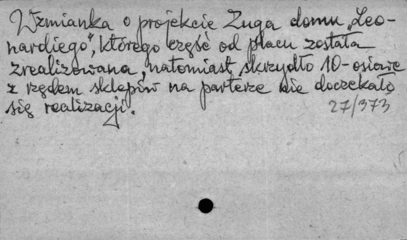 Wzmianka o projekcie Zuga domu „Leo-
nardiego", którego część od placu została
zrealizowana, natomiast skrzydło 10-osiowe
z rzędem sklepów na parterze nie doczekało
się realizacji.
27/373